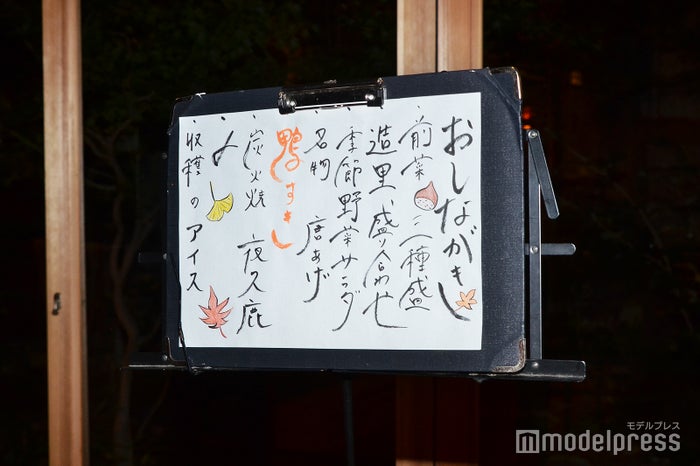 おしながき
・前菜 三種盛
・造里 盛り合わせ
・季節野菜サラダ
・名物 唐あげ
・鴨すきし
・炭火焼 夜久鹿
・〆
・収穫のアイス
モデルプレス
modelpress